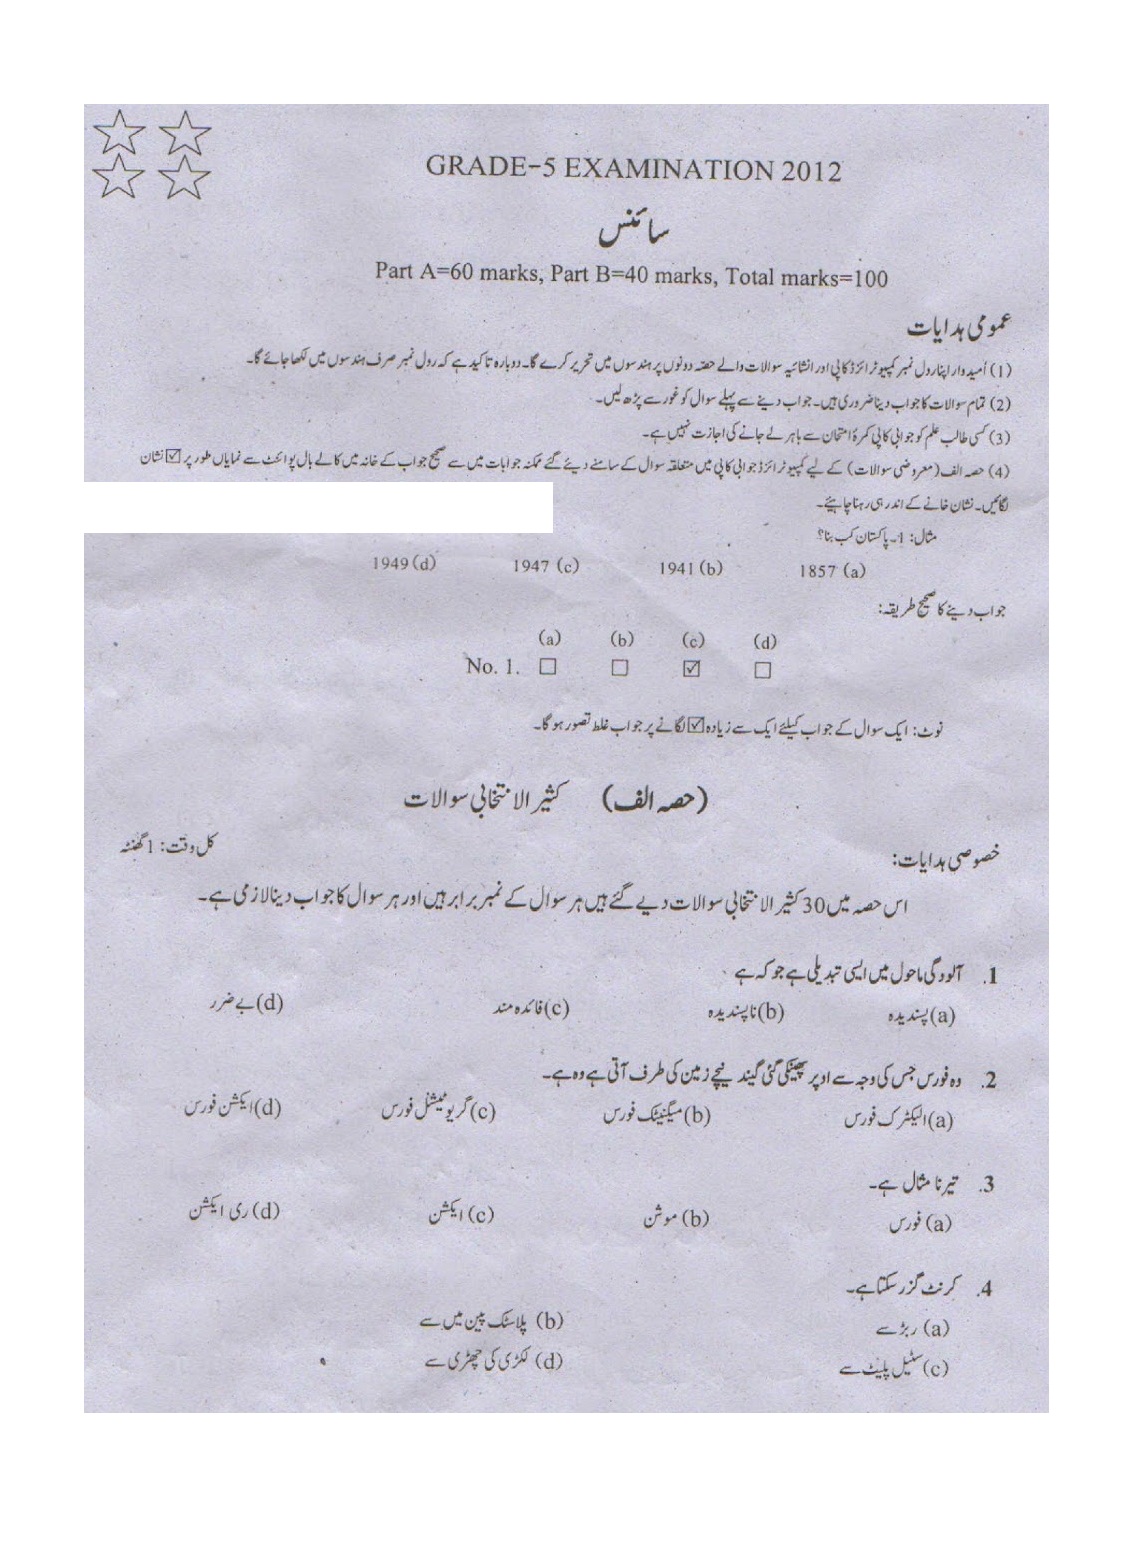 GRADE-5 EXAMINATION 2012
سائنس
Part A=60 marks, Part B=40 marks, Total marks=100
عمومی ہدایات
(1) اُمیدوار اپنا رول نمبر کمپیوٹرائزڈ کاپی اور انشائیہ سوالات والے حصہ دونوں پر ہندسوں میں تحریر کرے گا۔ دوبارہ تاکید ہے کہ رول نمبر صرف ہندسوں میں لکھا جائے گا۔
(2) تمام سوالات کا جواب دینا ضروری ہیں۔ جواب دینے سے پہلے سوال کو غور سے پڑھ لیں۔
(3) کسی طالب علم کو جوابی کاپی کمرۂ امتحان سے باہر لے جانے کی اجازت نہیں ہے۔
(4) حصہ الف (معروضی سوالات) کے لیے کمپیوٹرائزڈ جوابی کاپی میں متعلقہ سوال کے سامنے دیئے گئے ممکنہ جوابات میں سے صحیح جواب کے خانہ میں کالے بال پوائنٹ سے نمایاں طور پر ☑ نشان
لگائیں۔ نشان خانے کے اندر ہی رہنا چاہیئے۔
مثال: 1۔ پاکستان کب بنا؟
(a) 1857 (b) 1941 (c) 1947 (d) 1949
جواب دینے کا صحیح طریقہ:
(a) (b) (c) (d)
No. 1. ☐ ☐ ☑ ☐
نوٹ: ایک سوال کے جواب کیلئے ایک سے زیادہ ☑ لگانے پر جواب غلط تصور ہوگا۔
(حصہ الف) کثیر الانتخابی سوالات
خصوصی ہدایات: کل وقت: 1 گھنٹہ
اس حصہ میں 30 کثیر الانتخابی سوالات دیے گئے ہیں ہر سوال کے نمبر برابر ہیں اور ہر سوال کا جواب دینا لازمی ہے۔
1. آلودگی ماحول میں ایسی تبدیلی ہے جو کہ ہے
(a) پسندیدہ (b) ناپسندیدہ (c) فائدہ مند (d) بے ضرر
2. وہ فورس جس کی وجہ سے اوپر پھینکی گئی گیند نیچے زمین کی طرف آتی ہے وہ ہے۔
(a) الیکٹرک فورس (b) میگنیٹک فورس (c) گریویٹیشنل فورس (d) ایکشن فورس
3. تیرنا مثال ہے۔
(a) فورس (b) موشن (c) ایکشن (d) ری ایکشن
4. کرنٹ گزر سکتا ہے۔
(a) ربڑ سے (b) پلاسٹک پین میں سے
(c) سٹیل پلیٹ سے (d) لکڑی کی چھڑی سے